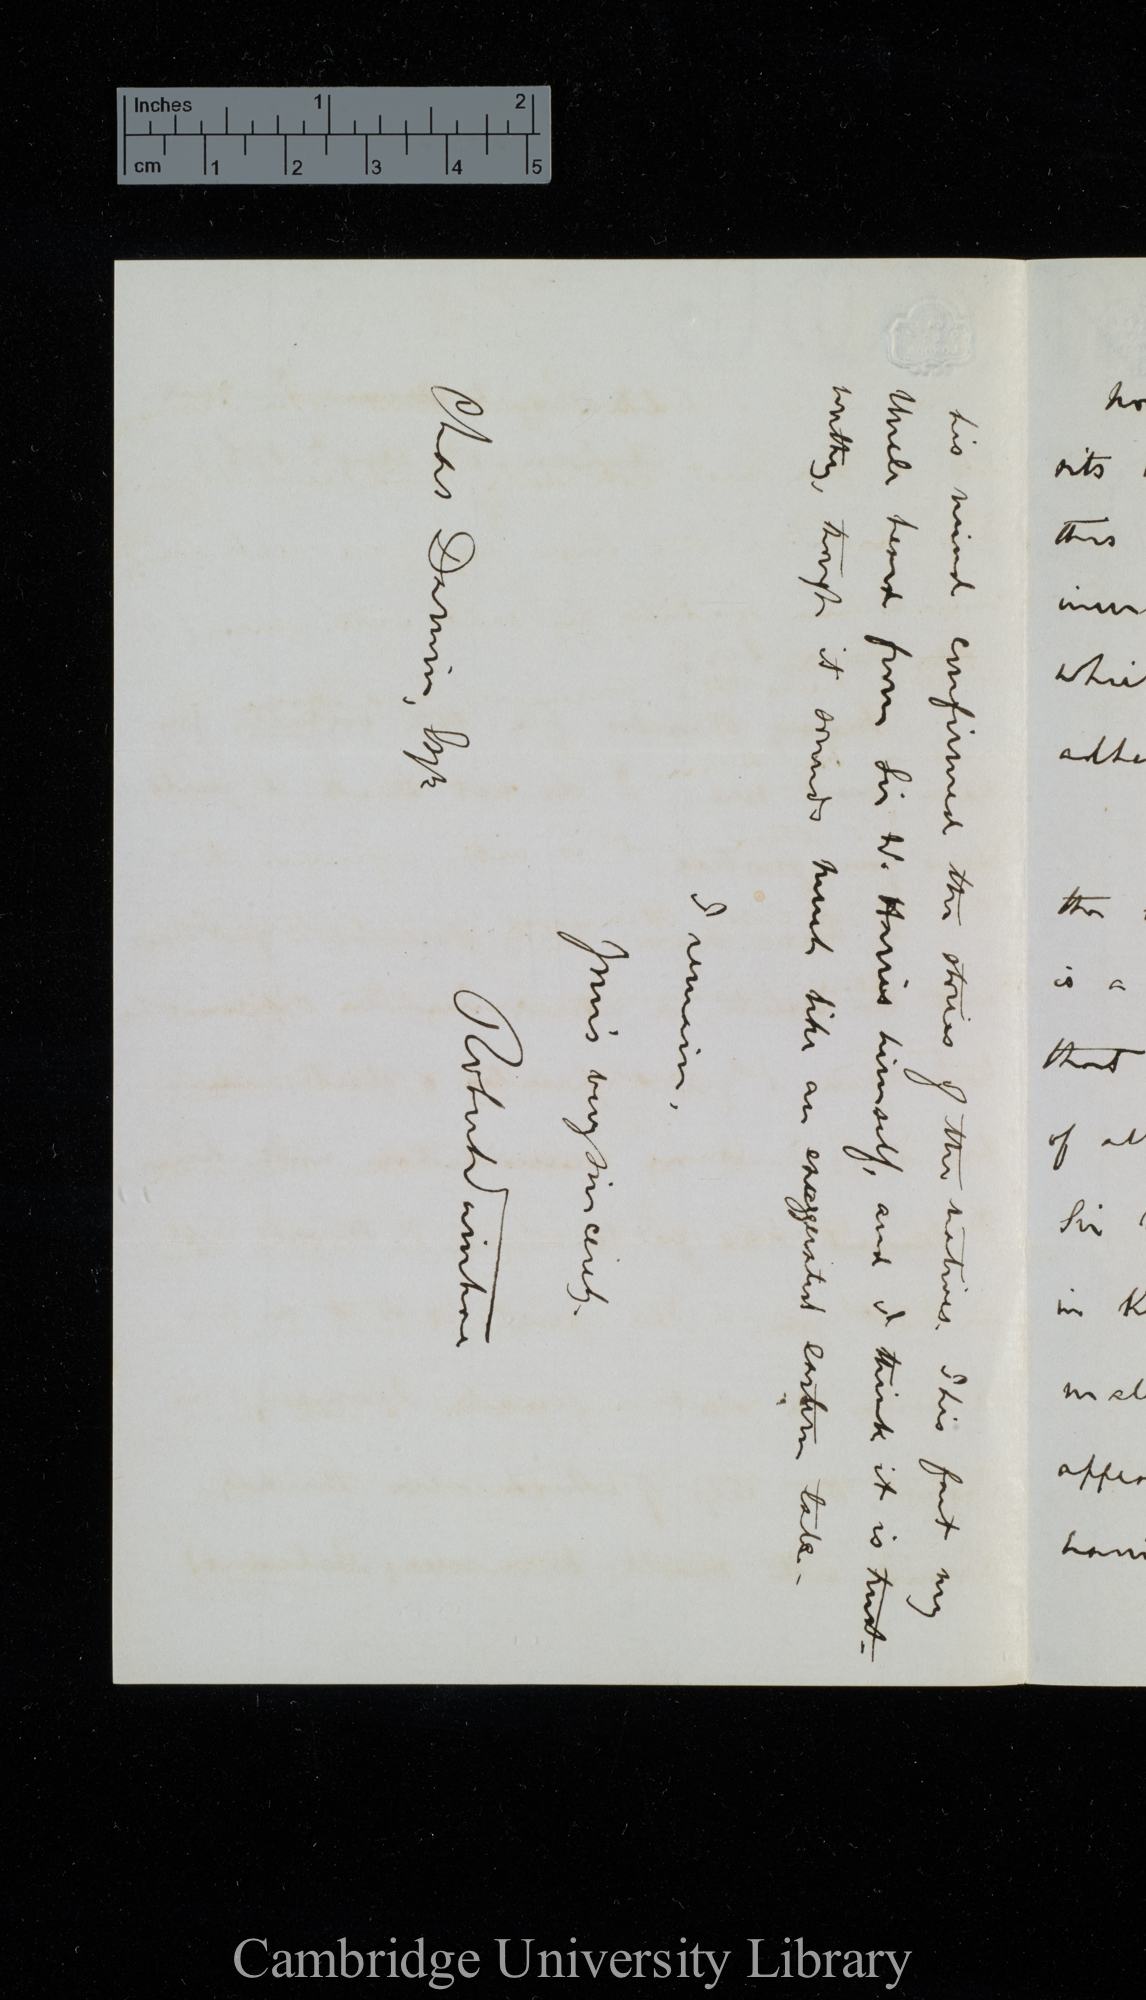 Inches 1 2
cm 1 2 3 4 5
his mind confirmed the stories of the natives. This fact my
Uncle heard from Sir W. Harris himself, and I think it is trust-
worthy, though it sounds much like an exaggerated eastern tale.-
I remain,
Yours very sincerely.
Robert Swinhoe
Chas Darwin, Esqre
sits
this
whic
adhe
the
is a
that
of al
Sir
in K
appea
Cambridge University Library